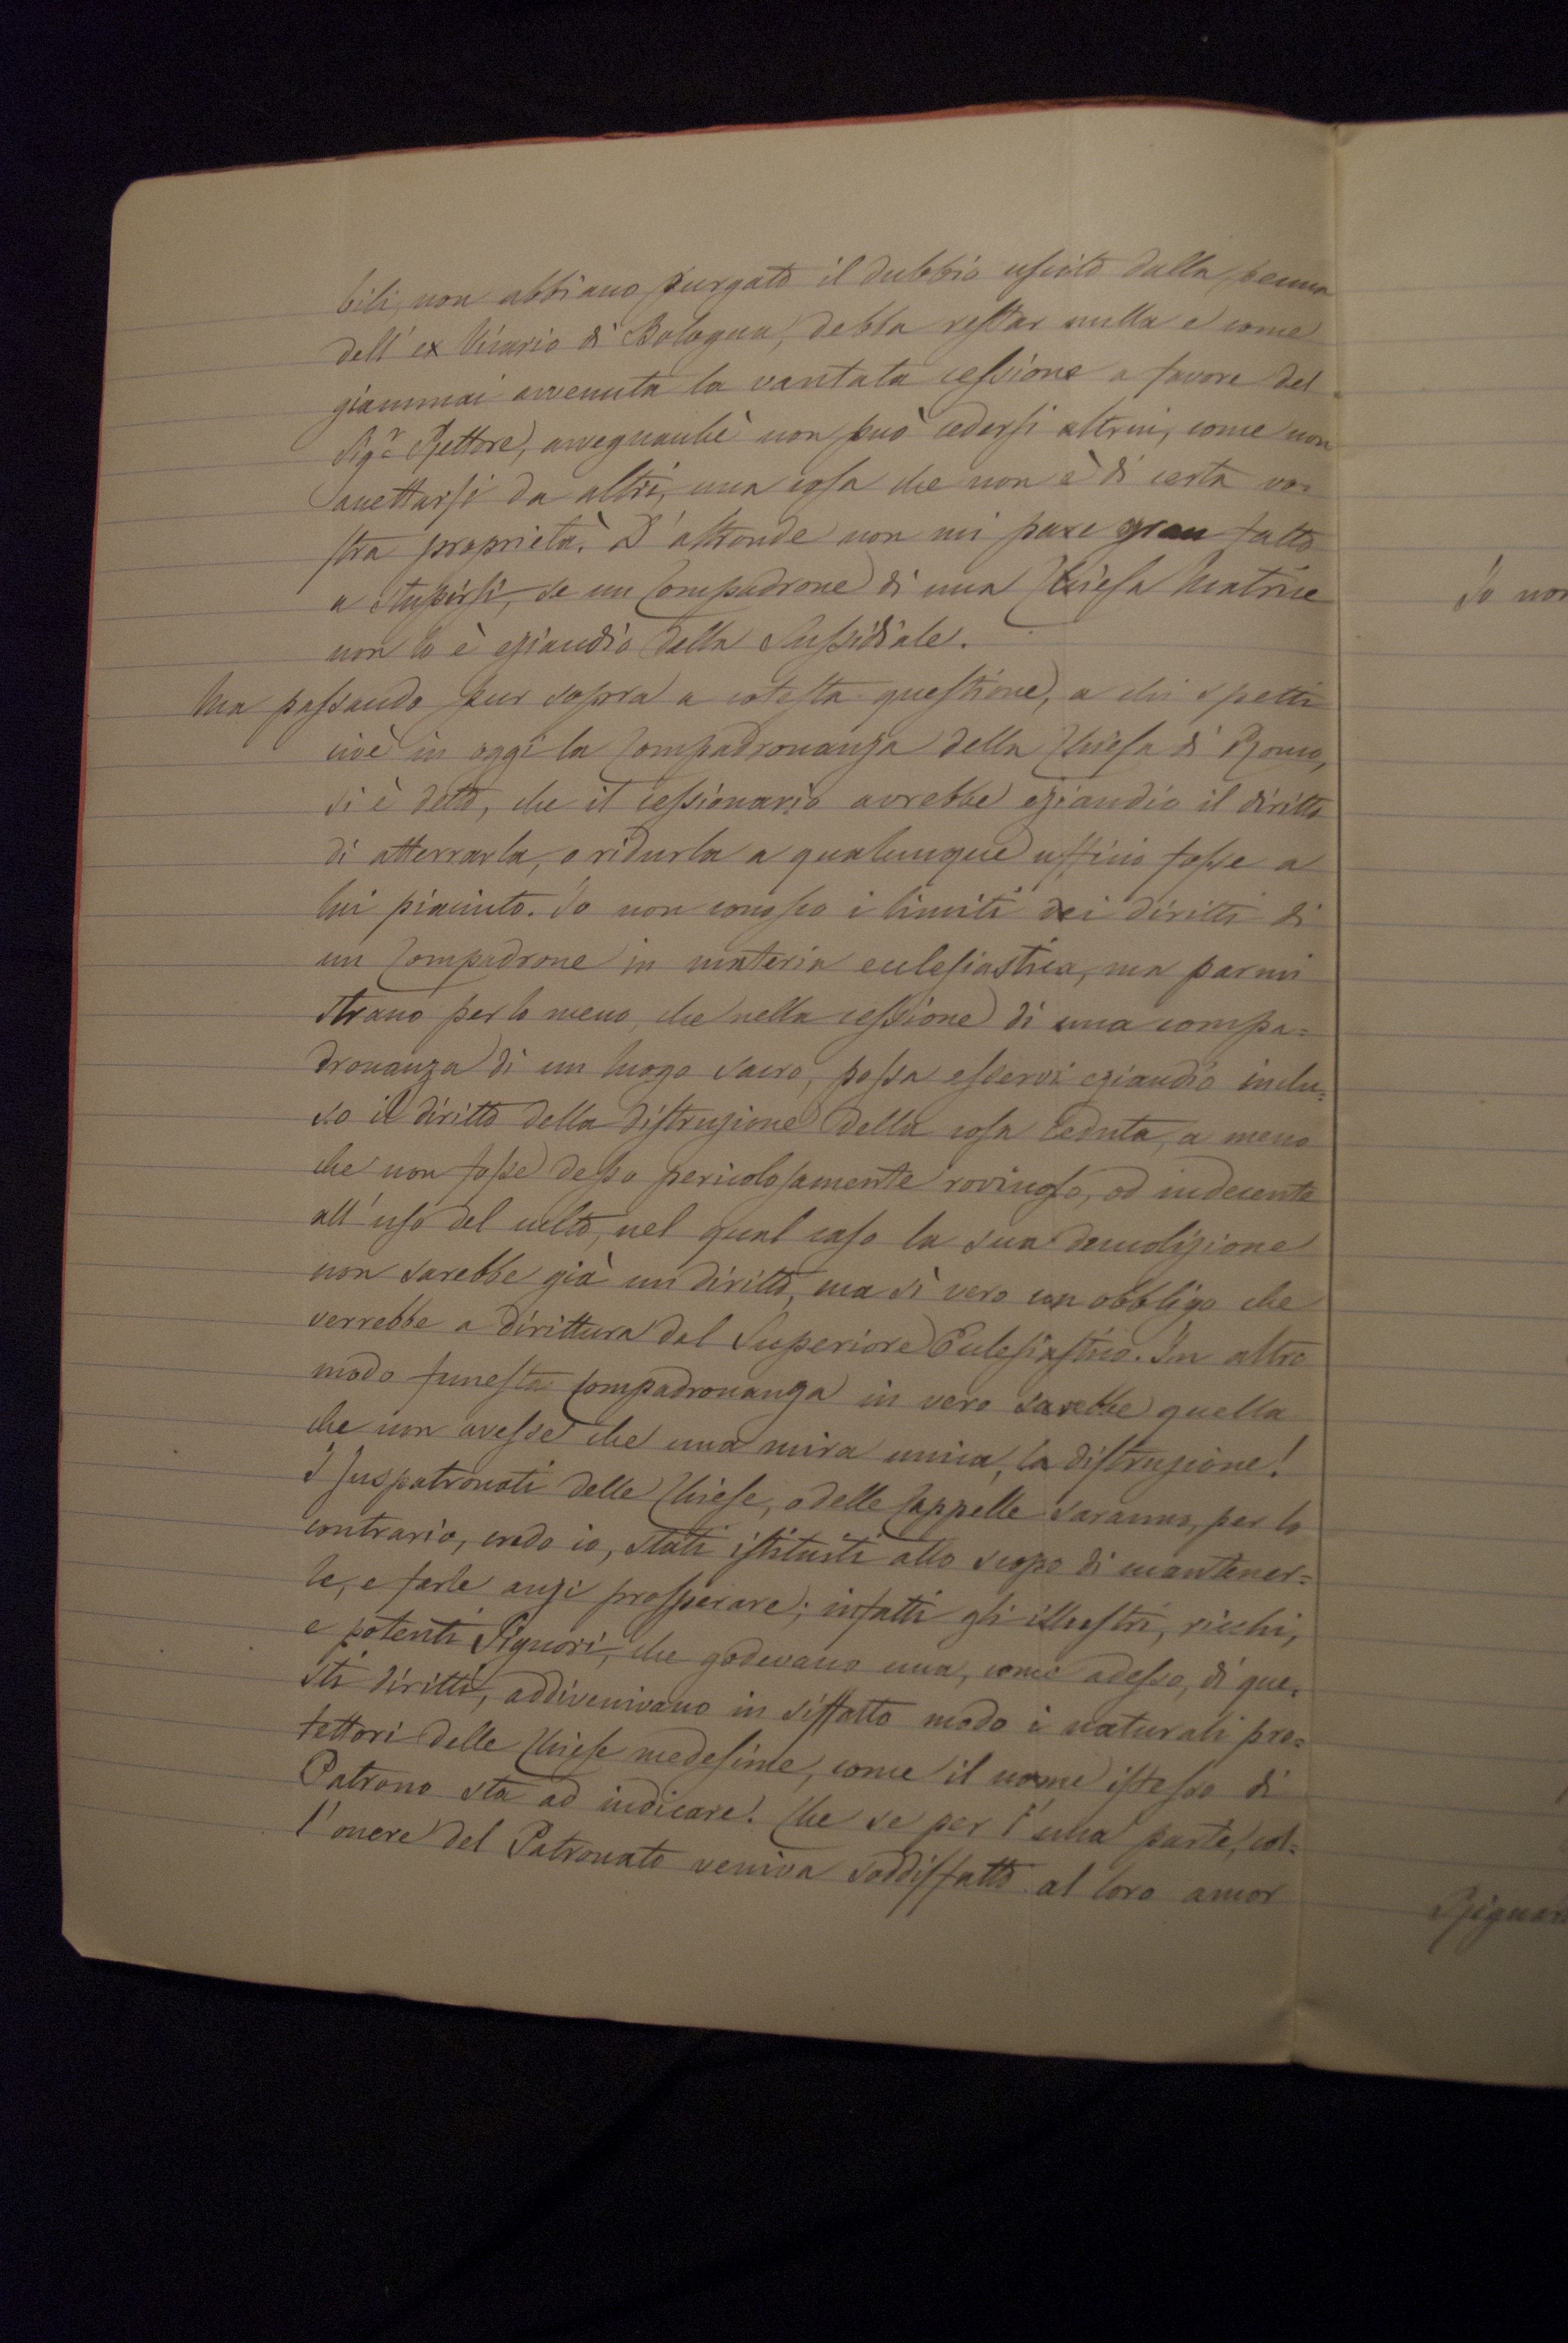 bili, non abbiano purgato il dubbio uscito dalla penna
dell'ex Vicario di Bologna, debba restar nulla e come
giammai avvenuta la vantata cessione a favore del
Sigr Rettore, avvegnachè non può cedersi altrui, come non
accettarsi da altri, una cosa che non è di certa vo=
stra proprietà. D'altronde non mi pare gran fatto
a stupirsi, se un Compadrone di una Chiesa Matrice
non lo è eziandio della Sussidiale.
Ma passando pur sopra a cotesta questione, a chi spetti
cioè in oggi la Compadronanza della Chiesa di
si è detto, che il cessionario avrebbe eziandio il diritto
di atterrarla, o ridurla a qualunque ufficio fosse a
lui piaciuto. Io non conosco i limiti dei diritti di
un Compadrone in materia ecclesiastica, ma parmi
strano per lo meno, che nella cessione di una compa=
dronanza di un luogo sacro, possa esservi eziandio inclu=
so il diritto della distruzione della cosa ceduta, a meno
che non fosse dessa pericolosamente rovinosa, od indecente
all'uso del culto, nel qual caso la sua demolizione
non sarebbe già un diritto, ma sì vero un obbligo che
verrebbe a dirittura dal Superiore Ecclesiastico. In altro
modo funesta compadronanza in vero sarebbe quella
che non avesse che una mira unica, la distruzione!
I Juspatronati delle Chiese, o delle Cappelle saranno, per lo
contrario, credo io, stati istituiti allo scopo di mantener=
le, e farle anzi prosperare; infatti gli illustri, ricchi,
e potenti Signori, che godevano una, come adesso, di que=
sti diritti, addivenivano in siffatto modo i naturali pro=
tettori delle Chiese medesime, come il nome istesso di
Patrono sta ad indicare. Che se per l'una parte, col=
l'onere del Patronato veniva soddisfatto al loro amor
Io non